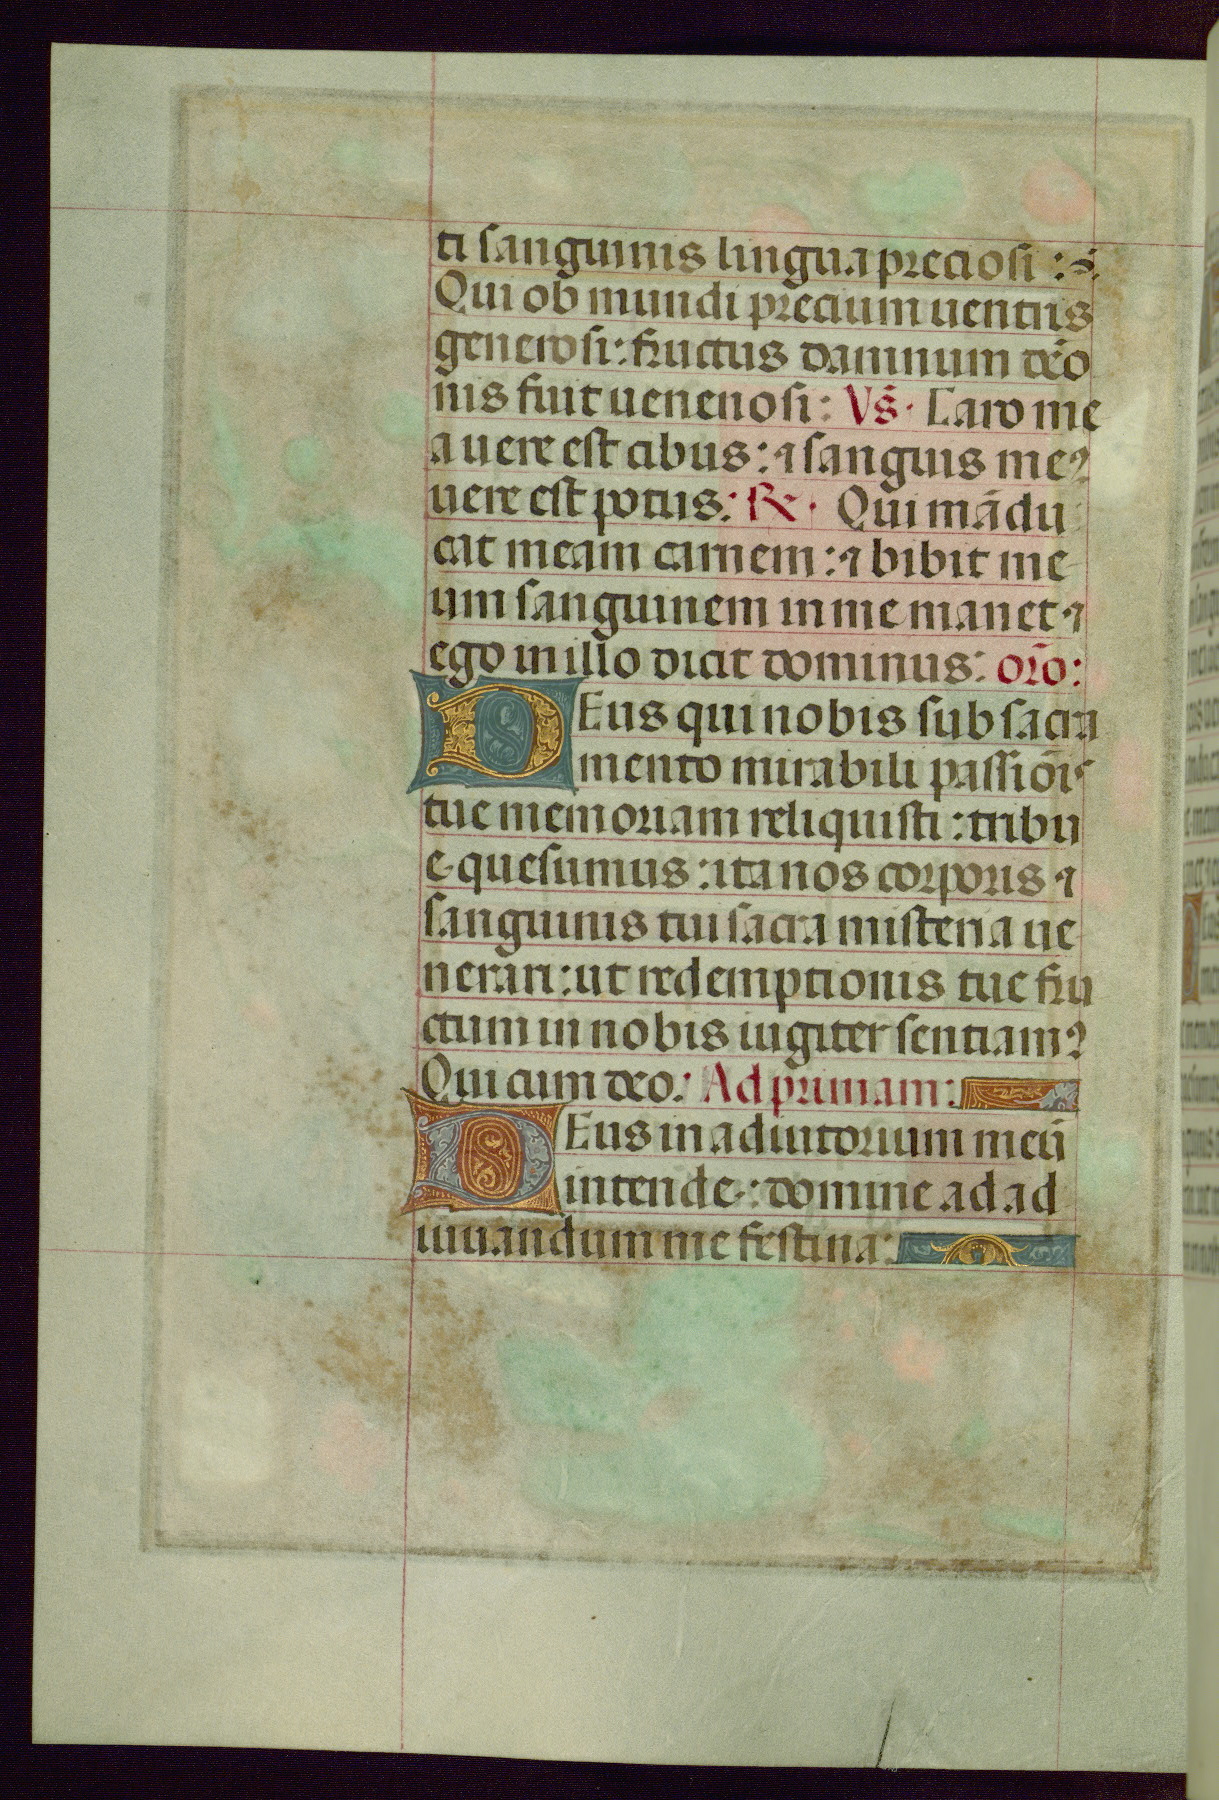 ti sanguinis lingua preciosi :
Qui ob mundi precium uentris
generosi: fructus damnum de͂o
nis fuit uenenosi: Vs̃· Caro me
a uere est cibus: ⁊ sanguis meꝰ
uere est potus: ℟· Qui mãdu
cat meam carnem: ⁊ bibit me
um sanguinem in me manet ⁊
ego in illo dicit dominus: orõ:
DEus qui nobis sub sacra
mento mirabili passiõis
tue memoriam reliquisti: tribu
e quesumus: ita nos corporis ⁊
sanguinis tui sacra misteria ue
nerari: ut redemptionis tue fru
ctum in nobis iugiter sentiamꝰ
Qui cum deo: Ad primam:
DEus in adiutorium meũ
intende: domine ad ad
iuuandum me festina: